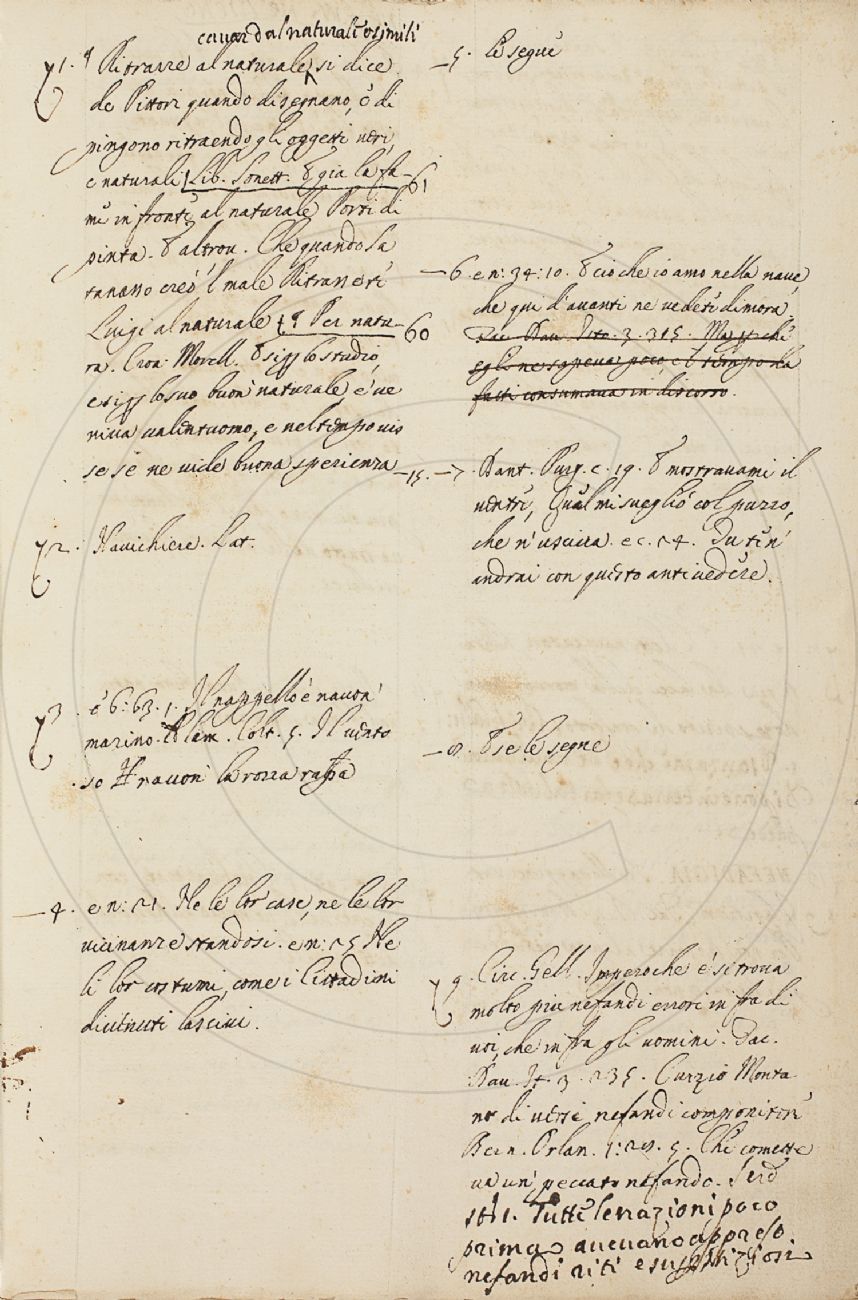 cavar dal naturale e simili
1. ¶ Ritrarre al naturale, si dice
de Pittori quando disegnano, ò di
pingono ritraendo gli oggetti veri,
e naturali Lib. Sonett. E gia la fa- 61
me in fronte al naturale Porti di
pinta. E altrov. Che quando la
creò l male Ritrar
Luigi al naturale ¶ Per natu- 60
ra. Cron: Morell. E lo studio,
e lo suo buon naturale, é ve
niva valentuomo, e nel tempo vis
se se ne vide buona sperienza
2. Navichiere. Lat.
3. è 6: 63. 1. Il nappello è navon
marino. Alam. Colt. 5. Il vento
so navon la rozza rapa
4. e n: 21. Ne le lor case, ne le lor
vicinanze standosi. e n: 25 Ne
li lor costumi, come i Cittadini
divenuti lascivi.
5. Le segue
6. e n: 34: 10. E cio che io amo nella nave
che qui d'avanti ne vedete dimora,
Tac. Dav. Sto. 3. 315. Ma che
egli ne sapeva poco, e l tempo da
fatti consumava in discorso.
15. 7. Dant. Purg. c. 19. E mostravami il
ventre, Qual mi svegliò col puzzo,
che n'usciva. e c. 24. Tu te n'
andrai con questo antivedere.
8. E se le segne
9. Circ. Gell. Imperoche é si trova
molto piu nefandi errori infra di
voi, che infra gli uomini. Tac.
Dav. St. 3. 235. Curzio Monta
no di versi nefandi componitore
Bern. Orlan. 1: 29. 5. Che comette
va un peccato nefando. Serd
st: 1. Tutte le nazioni poco
prima avevano appreso
nefandi riti e suprstiziosi